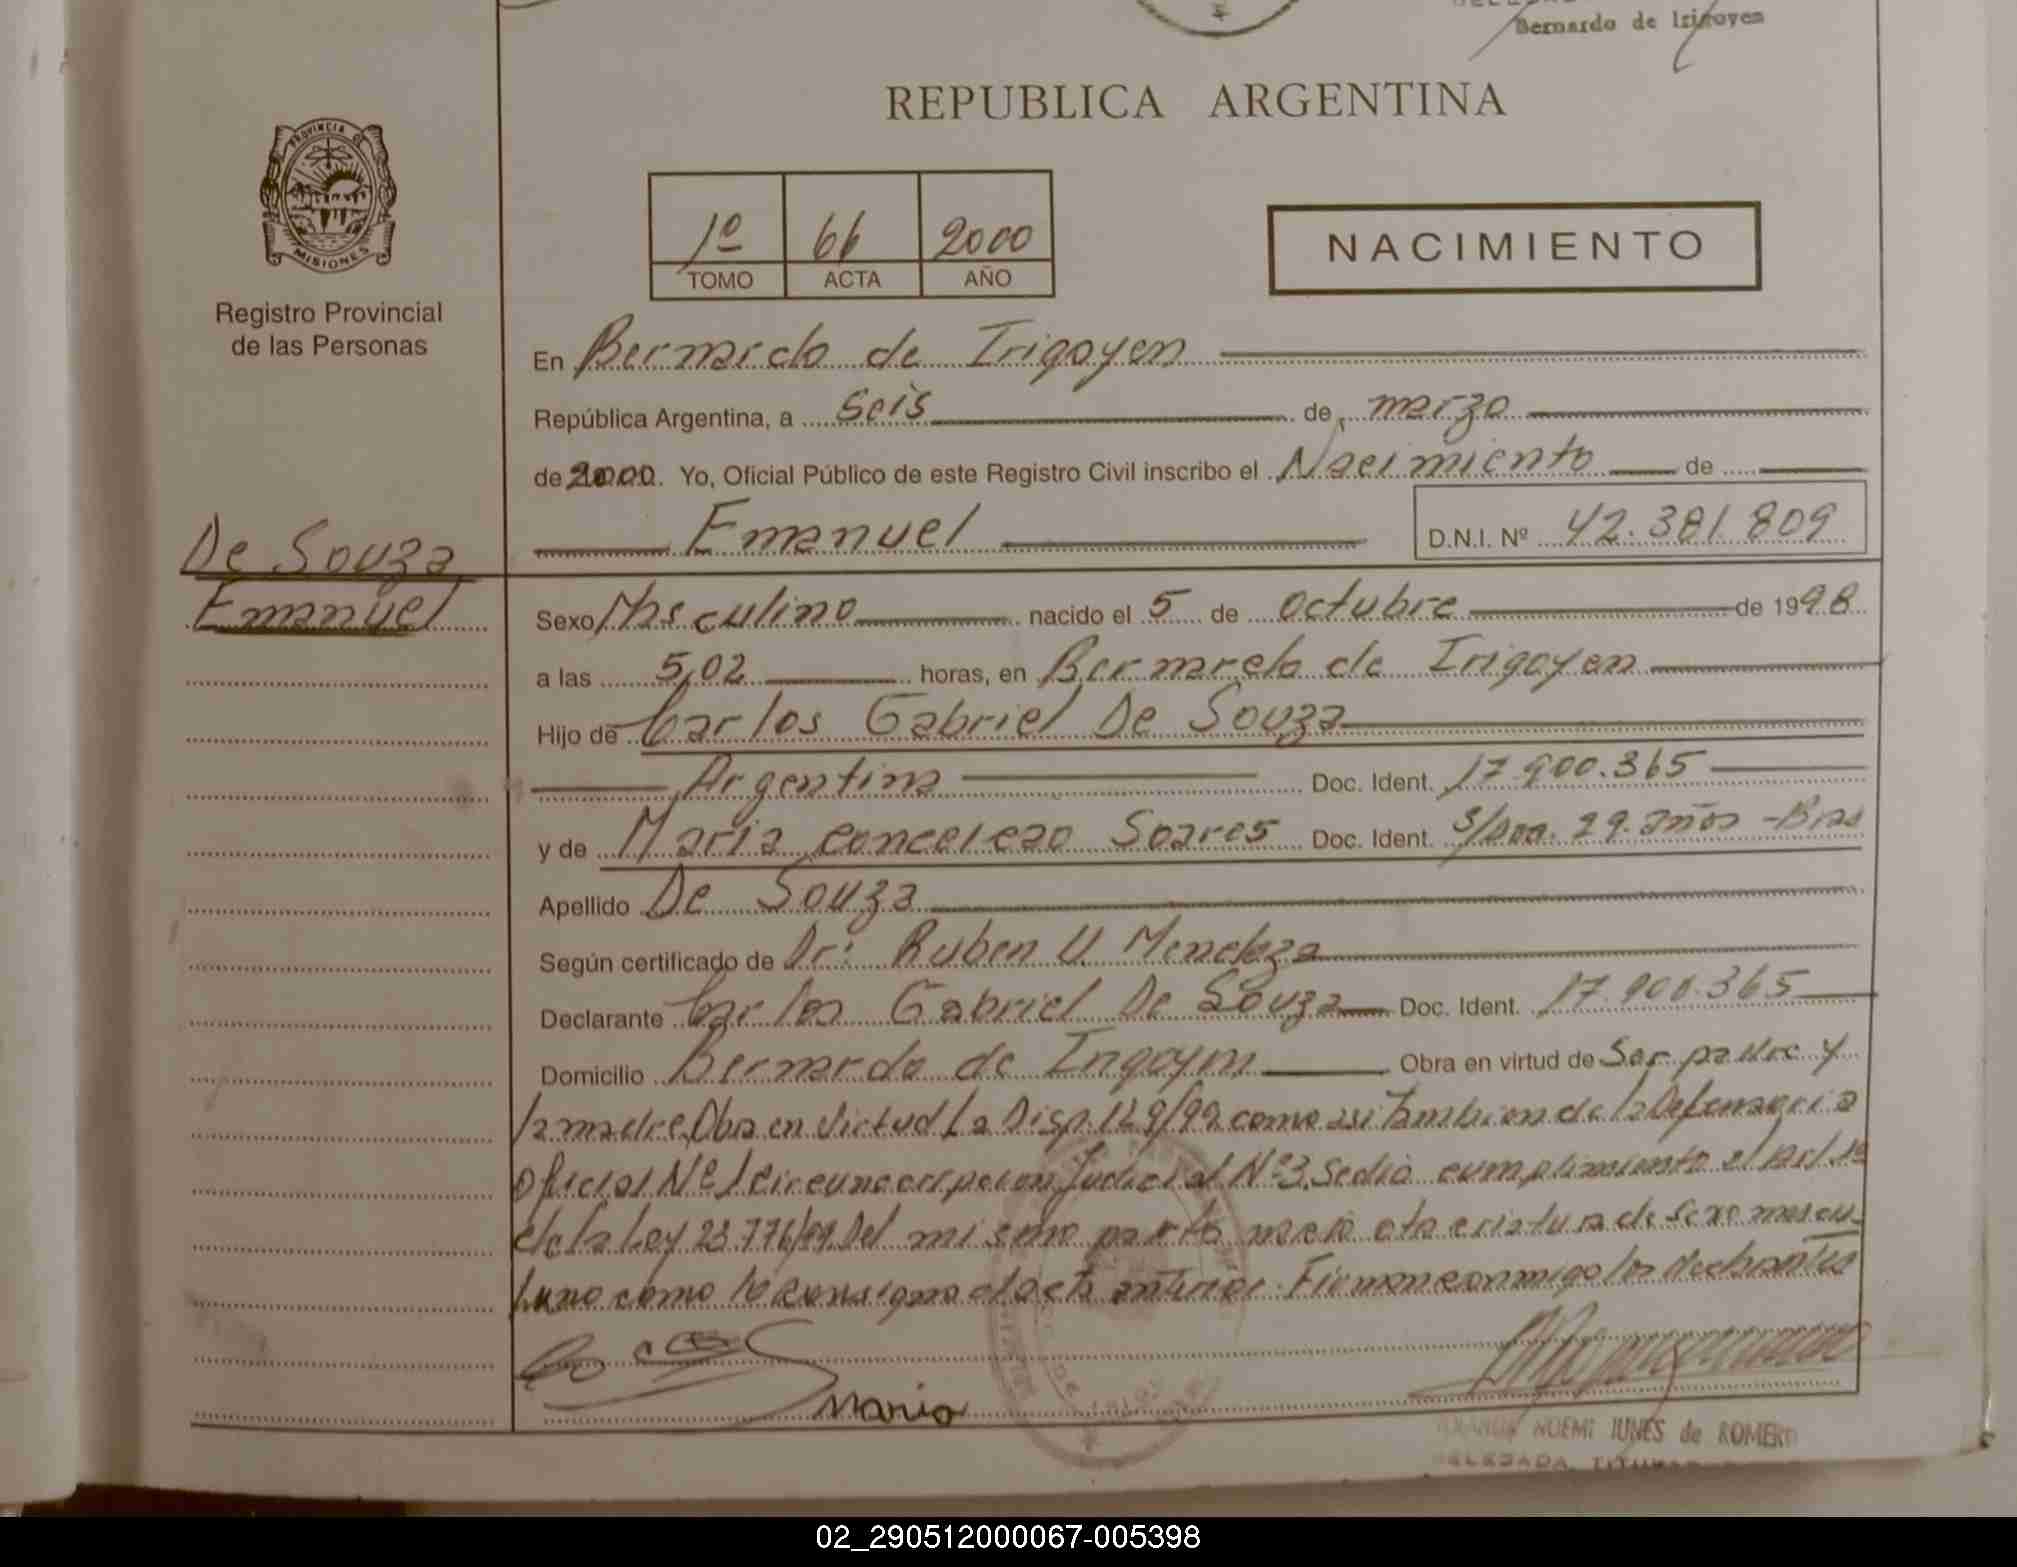 Bernardo de Irigoyen
REPUBLICA ARGENTINA
PROVINCIA DE
MISIONES
1º 66 2000
TOMO ACTA AÑO
NACIMIENTO
Registro Provincial
de las Personas
En Bernardo de Irigoyen
República Argentina, a Seis de marzo
de 2000. Yo, Oficial Público de este Registro Civil inscribo el Nacimiento de
Emanuel D.N.I. Nº 42.381.809
De Souza
Emanuel
Sexo Masculino nacido el 5 de Octubre de 1998
a las 5,02 horas, en Bernardo de Irigoyen
Hijo de Carlos Gabriel De Souza
Argentina Doc. Ident. 17.900.365
y de Maria Conceicao Soares Doc. Ident. S/Doc. 29 años - Bras
Apellido De Souza
Según certificado de Dr: Ruben U. Mendeza
Declarante Carlos Gabriel De Souza Doc. Ident. 17.900.365
Domicilio Bernardo de Irigoyen Obra en virtud de Ser padre y
la madre, Obra en virtud La Disp. 129/99 como asi tambien de la Defensoria
Oficial Nº 1 circunscripcion Judicial Nº 3. Sedio cumplimiento el art 1º
de la Ley 23.776/99 Del mismo parto nacio otra criatura de sexo mascu
lino como lo consigna el acta anterior. Firman conmigo los declarantes
Maria
NOEMI IUNES de ROMERO
DELEGADA TITULAR
02_290512000067-005398